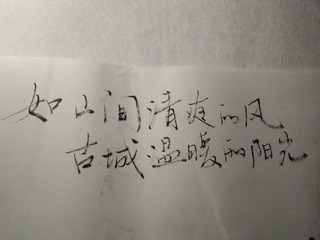 如山间清爽的风
古城温暖的阳光